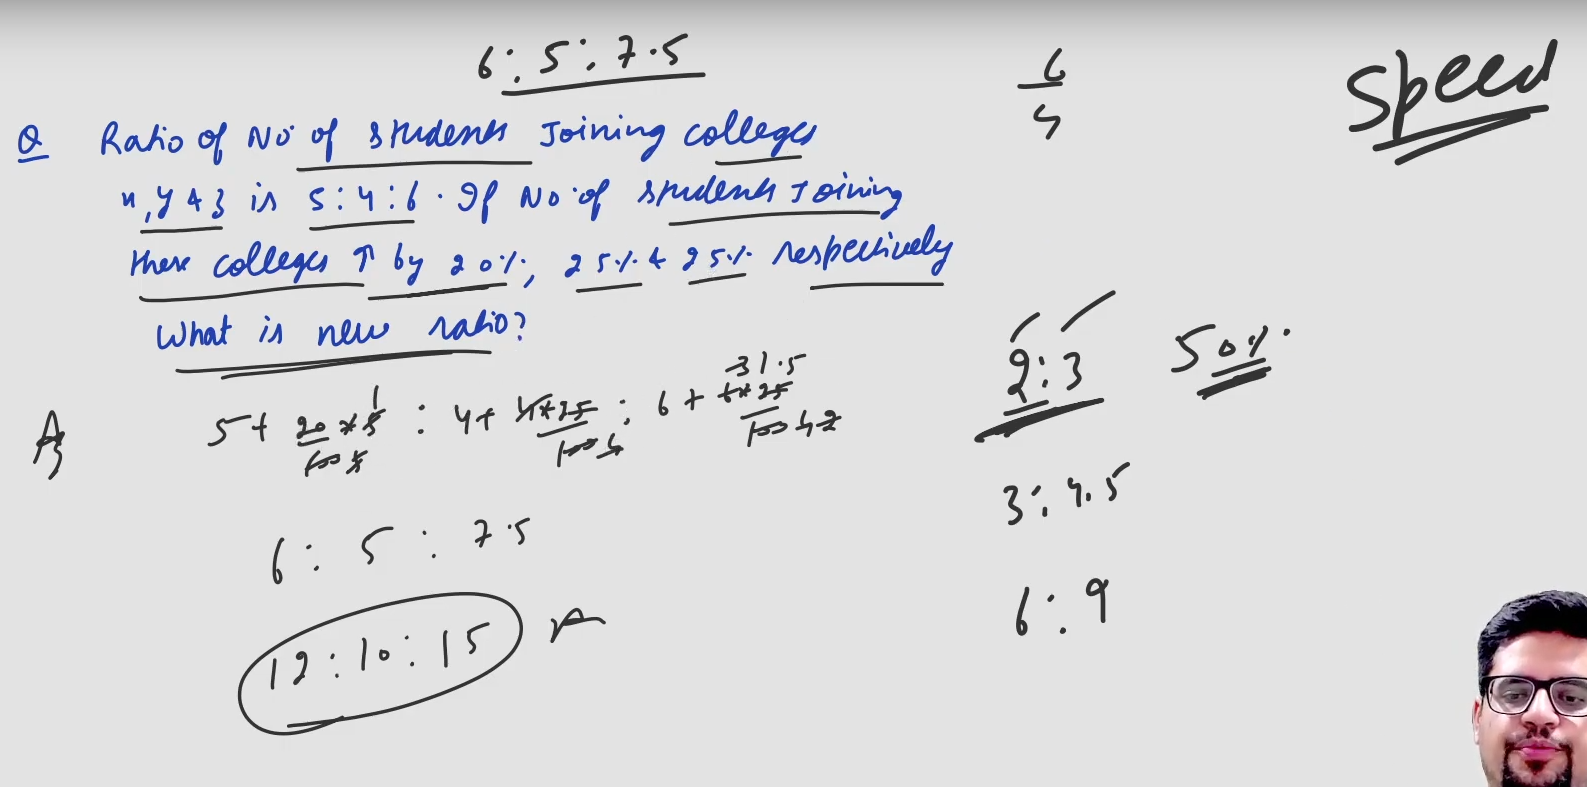 6 : 5 : 7.5
6/4
Speed
Q Ratio of No of students Joining colleges
x, y & z is 5 : 4 : 6 . If No of students Joining
these colleges ↑ by 20%, 25% & 25% respectively
What is new ratio?
2 : 3 50%
5 + 20*5/100 : 4 + 4*25/100 : 6 + 6*25/100
3 : 4.5
6 : 5 : 7.5
6 : 9
12 : 10 : 15